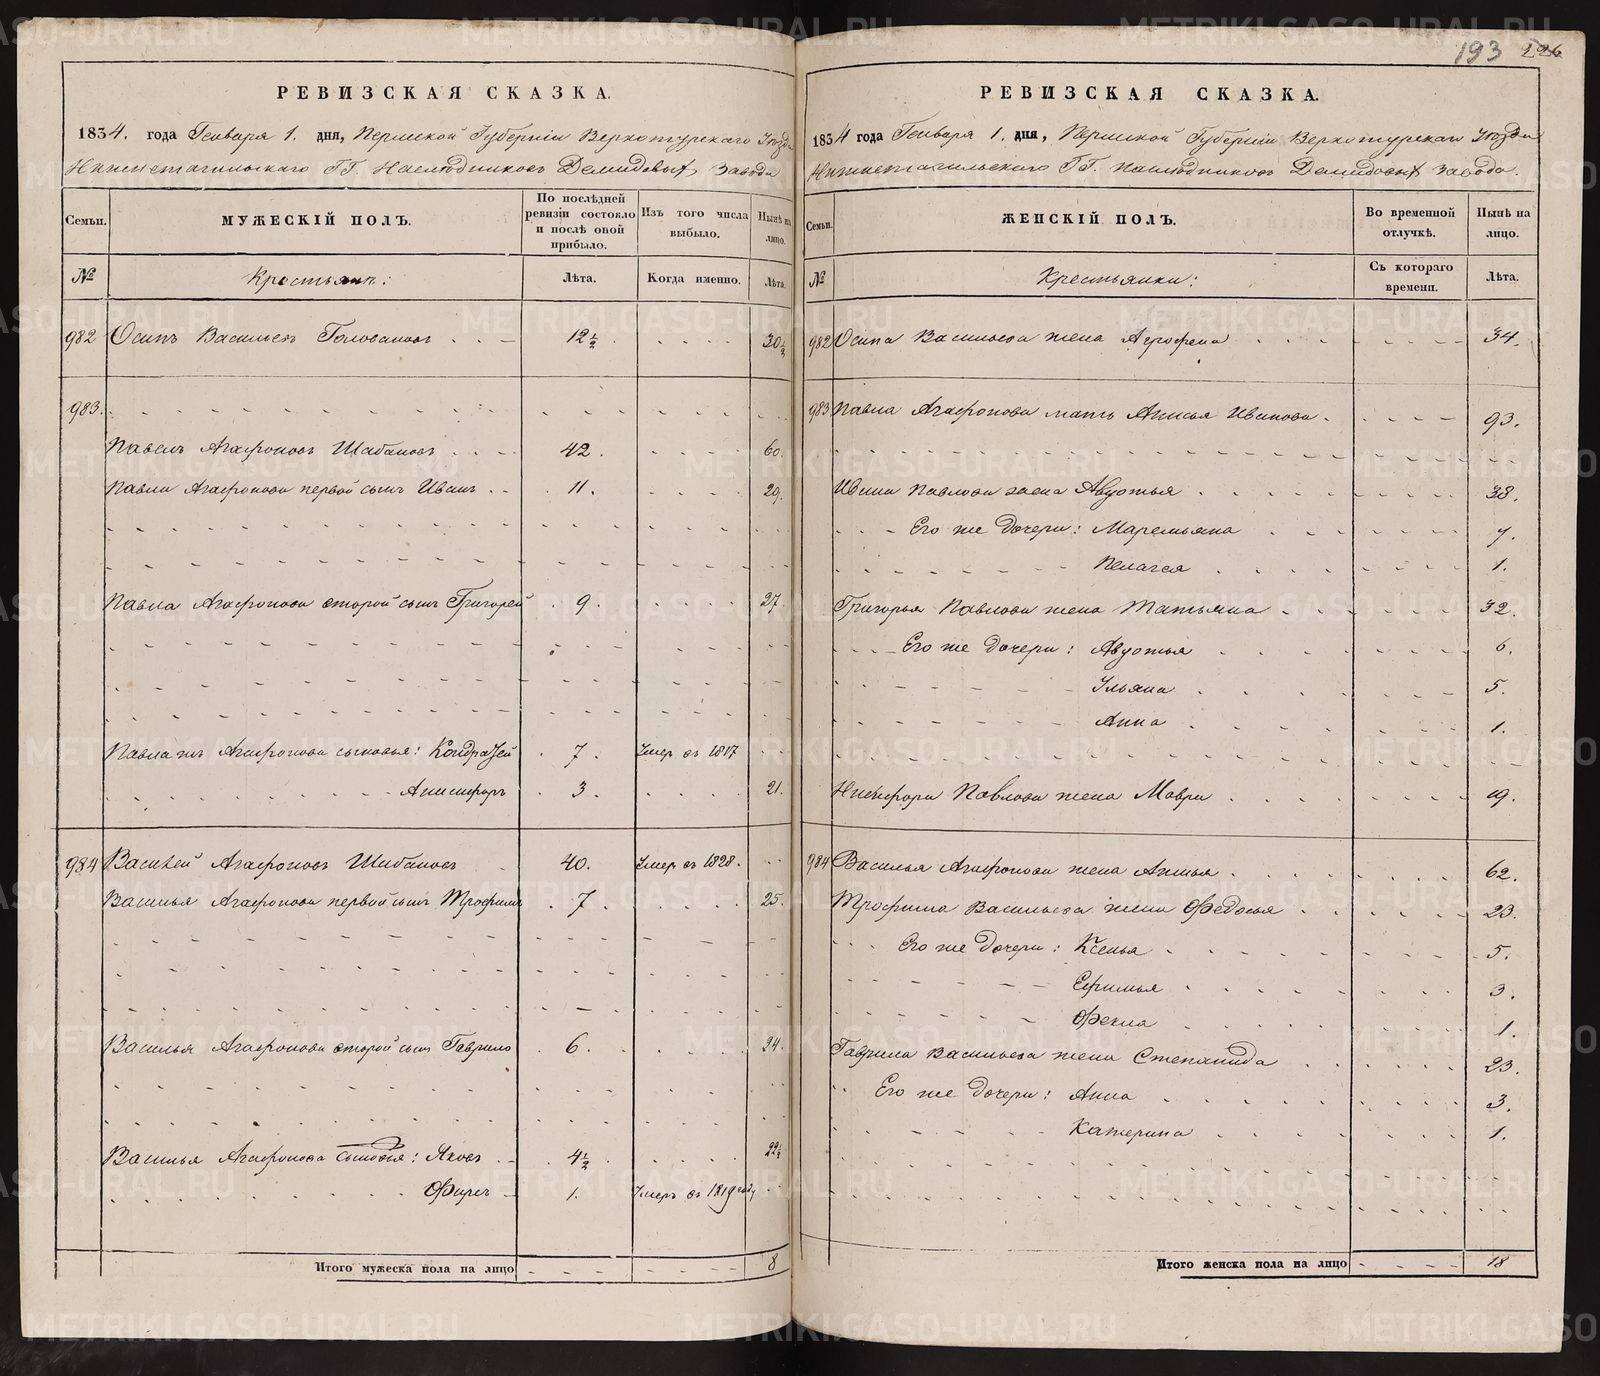 193 226
РЕВИЗСКАЯ СКАЗКА.
1834. года Генваря 1. дня, Пермской Губерніи Верхотурскаго Уезда
Нижнетагильскаго ГГ. Наследниковъ Демидовыхъ Завода
Семьи. МУЖЕСКІЙ ПОЛЪ. По послѣдней ревизіи состояло и послѣ оной прибыло. Изъ того числа выбыло. Нынѣ на лицо.
№ Крестьянъ: Лѣта. Когда именно. Лѣта.
982 Осипъ Васильевъ Головановъ 12½ 30½
983.
Павелъ Агафоновъ Шабановъ 42. 60.
Павла Агафонова первой сынъ Иванъ 11. 29.
Павла Агафонова второй сынъ Григорей 9. 27.
Павла жъ Агафонова сыновья: Кондратей 7. Умер въ 1817
Анисифоръ 3. 21.
984 Василей Агафоновъ Шабановъ 40. Умер въ 1828.
Василья Агафонова первой сынъ Трофимъ 7. 25.
Василья Агафонова второй сынъ Гаврило 6. 24.
Василья Агафонова сыновья: Яковъ 4½ 22½
Фирсъ 1. Умеръ въ 1819 году
Итого мужеска пола на лицо 8
РЕВИЗСКАЯ СКАЗКА.
1834 года Генваря 1. дня, Пермской Губерніи Верхотурскаго Уезда
Нижнетагильскаго ГГ. Наследниковъ Демидовыхъ Завода.
Семьи. ЖЕНСКІЙ ПОЛЪ. Во временной отлучкѣ. Нынѣ на лицо.
№ Крестьянки: Съ котораго времени. Лѣта.
982 Осипа Васильева жена Агрофена 34.
983 Павла Агафонова мать Анисья Иванова 93.
Ивана Павлова жена Авдотья 38.
Его же дочери: Маремьяна 7.
Пелагея 1.
Григорья Павлова жена Татьяна 32.
Его же дочери: Авдотья 6.
Ульяна 5.
Анна 1.
Никифора Павлова жена Мавра 19.
984 Василья Агафонова жена Анисья 62.
Трофима Васильева жена Федосья 23.
Его же дочери: Ксенья 5.
Ефимья 3.
Фекла 1.
Гаврила Васильева жена Степанида 23.
Его же дочери: Анна 3.
Катерина 1.
Итого женска пола на лицо 18
METRIKI.GASO-URAL.RU